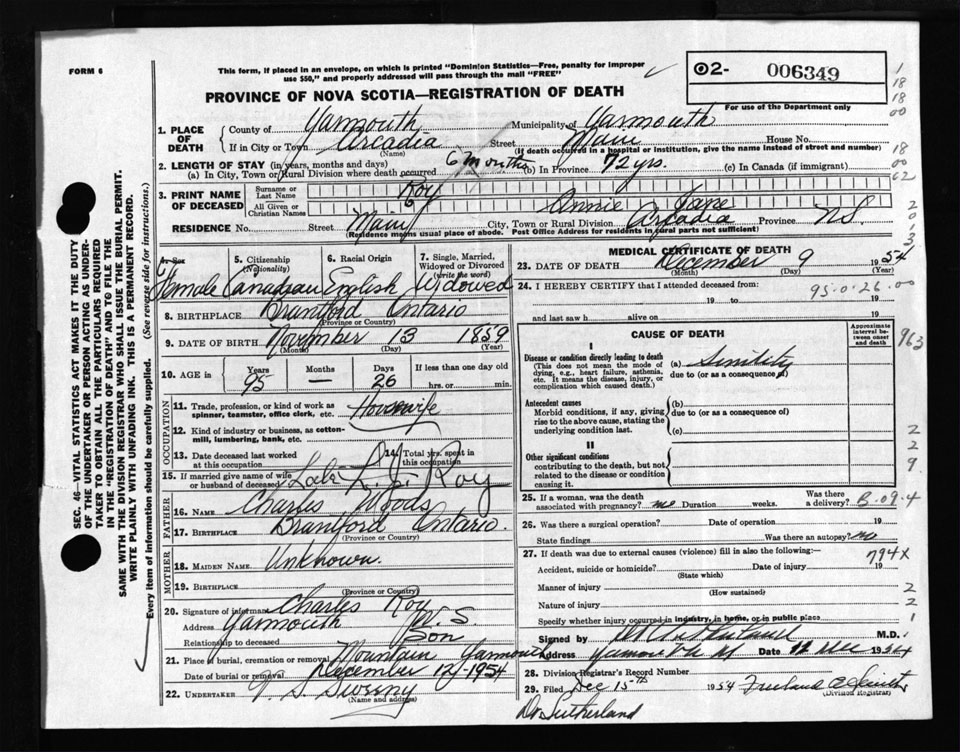 FORM 6
This form, if placed in an envelope, on which is printed "Dominion Statistics—Free, penalty for improper
use $50," and properly addressed will pass through the mail "FREE"
PROVINCE OF NOVA SCOTIA—REGISTRATION OF DEATH
2- 006349
For use of the Department only
1. PLACE OF DEATH
County of Yarmouth Municipality of Yarmouth
If in City or Town Arcadia Street Main House No.
(Name) (If death occurred in a hospital or institution, give the name instead of street and number)
2. LENGTH OF STAY (in years, months and days)
(a) In City, Town or Rural Division where death occurred 6 months (b) In Province 72 yrs. (c) In Canada (if immigrant)
3. PRINT NAME OF DECEASED
Surname or Last Name Roy
All Given or Christian Names Annie Jane
RESIDENCE No. Street Main City, Town or Rural Division Arcadia Province N.S.
(Residence means usual place of abode. Post Office Address for residents in rural parts not sufficient)
4. Sex 5. Citizenship (Nationality) 6. Racial Origin 7. Single, Married, Widowed or Divorced (write the word)
Female Canadian English Widowed
8. BIRTHPLACE Brantford Ontario
(Province or Country)
9. DATE OF BIRTH November 13 1859
(Month) (Day) (Year)
10. AGE in Years Months Days If less than one day
95 — 26 hrs. or min.
OCCUPATION
11. Trade, profession, or kind of work as spinner, teamster, office clerk, etc. Housewife
12. Kind of industry or business, as cotton-mill, lumbering, bank, etc.
13. Date deceased last worked at this occupation
14. Total yrs. spent in this occupation
15. If married give name of wife or husband of deceased Late L. J. Roy
FATHER
16. NAME Charles Woods
17. BIRTHPLACE Brantford Ontario.
(Province or Country)
MOTHER
18. MAIDEN NAME Unknown.
19. BIRTHPLACE
(Province or Country)
20. Signature of informant Charles Roy
Address Yarmouth N.S.
Relationship to deceased Son
21. Place of burial, cremation or removal Mountain Yarmouth
Date of burial or removal December 12-1954
22. UNDERTAKER S. Sweeny
(Name and address)
MEDICAL CERTIFICATE OF DEATH
23. DATE OF DEATH December 9 1954
(Month) (Day) (Year)
24. I HEREBY CERTIFY that I attended deceased from:
95.0.26.00
19 to 19
and last saw h alive on 19
CAUSE OF DEATH
Approximate interval between onset and death
963
I
Disease or condition directly leading to death (a) Senility
(This does not mean the mode of dying, e.g., heart failure, asthenia, etc. It means the disease, injury, or complication which caused death.)
due to (or as a consequence of)
Antecedent causes (b)
Morbid conditions, if any, giving rise to the above cause, stating the underlying condition last.
due to (or as a consequence of)
(c)
II
Other significant conditions
contributing to the death, but not related to the disease or condition causing it.
25. If a woman, was the death associated with pregnancy? no Duration weeks. Was there a delivery? B.09.4
26. Was there a surgical operation? Date of operation 19
State findings Was there an autopsy? no
27. If death was due to external causes (violence) fill in also the following:—
794X
Accident, suicide or homicide? Date of injury 19
(State which)
Manner of injury
(How sustained)
Nature of injury
Specify whether injury occurred in industry, in home, or in public place
Signed by M.D.
Address Yarmouth NS Date 12 Dec 1954
28. Division Registrar's Record Number
29. Filed Dec 15th 1954
(Division Registrar)
Dr Sutherland
SEC. 46—VITAL STATISTICS ACT MAKES IT THE DUTY
OF THE UNDERTAKER OR PERSON ACTING AS UNDER-
TAKER TO OBTAIN ALL THE PARTICULARS REQUIRED
IN THE "REGISTRATION OF DEATH" AND TO FILE THE
SAME WITH THE DIVISION REGISTRAR WHO SHALL ISSUE THE BURIAL PERMIT.
WRITE PLAINLY WITH UNFADING INK. THIS IS A PERMANENT RECORD.
Every item of information should be carefully supplied. (See reverse side for instructions.)